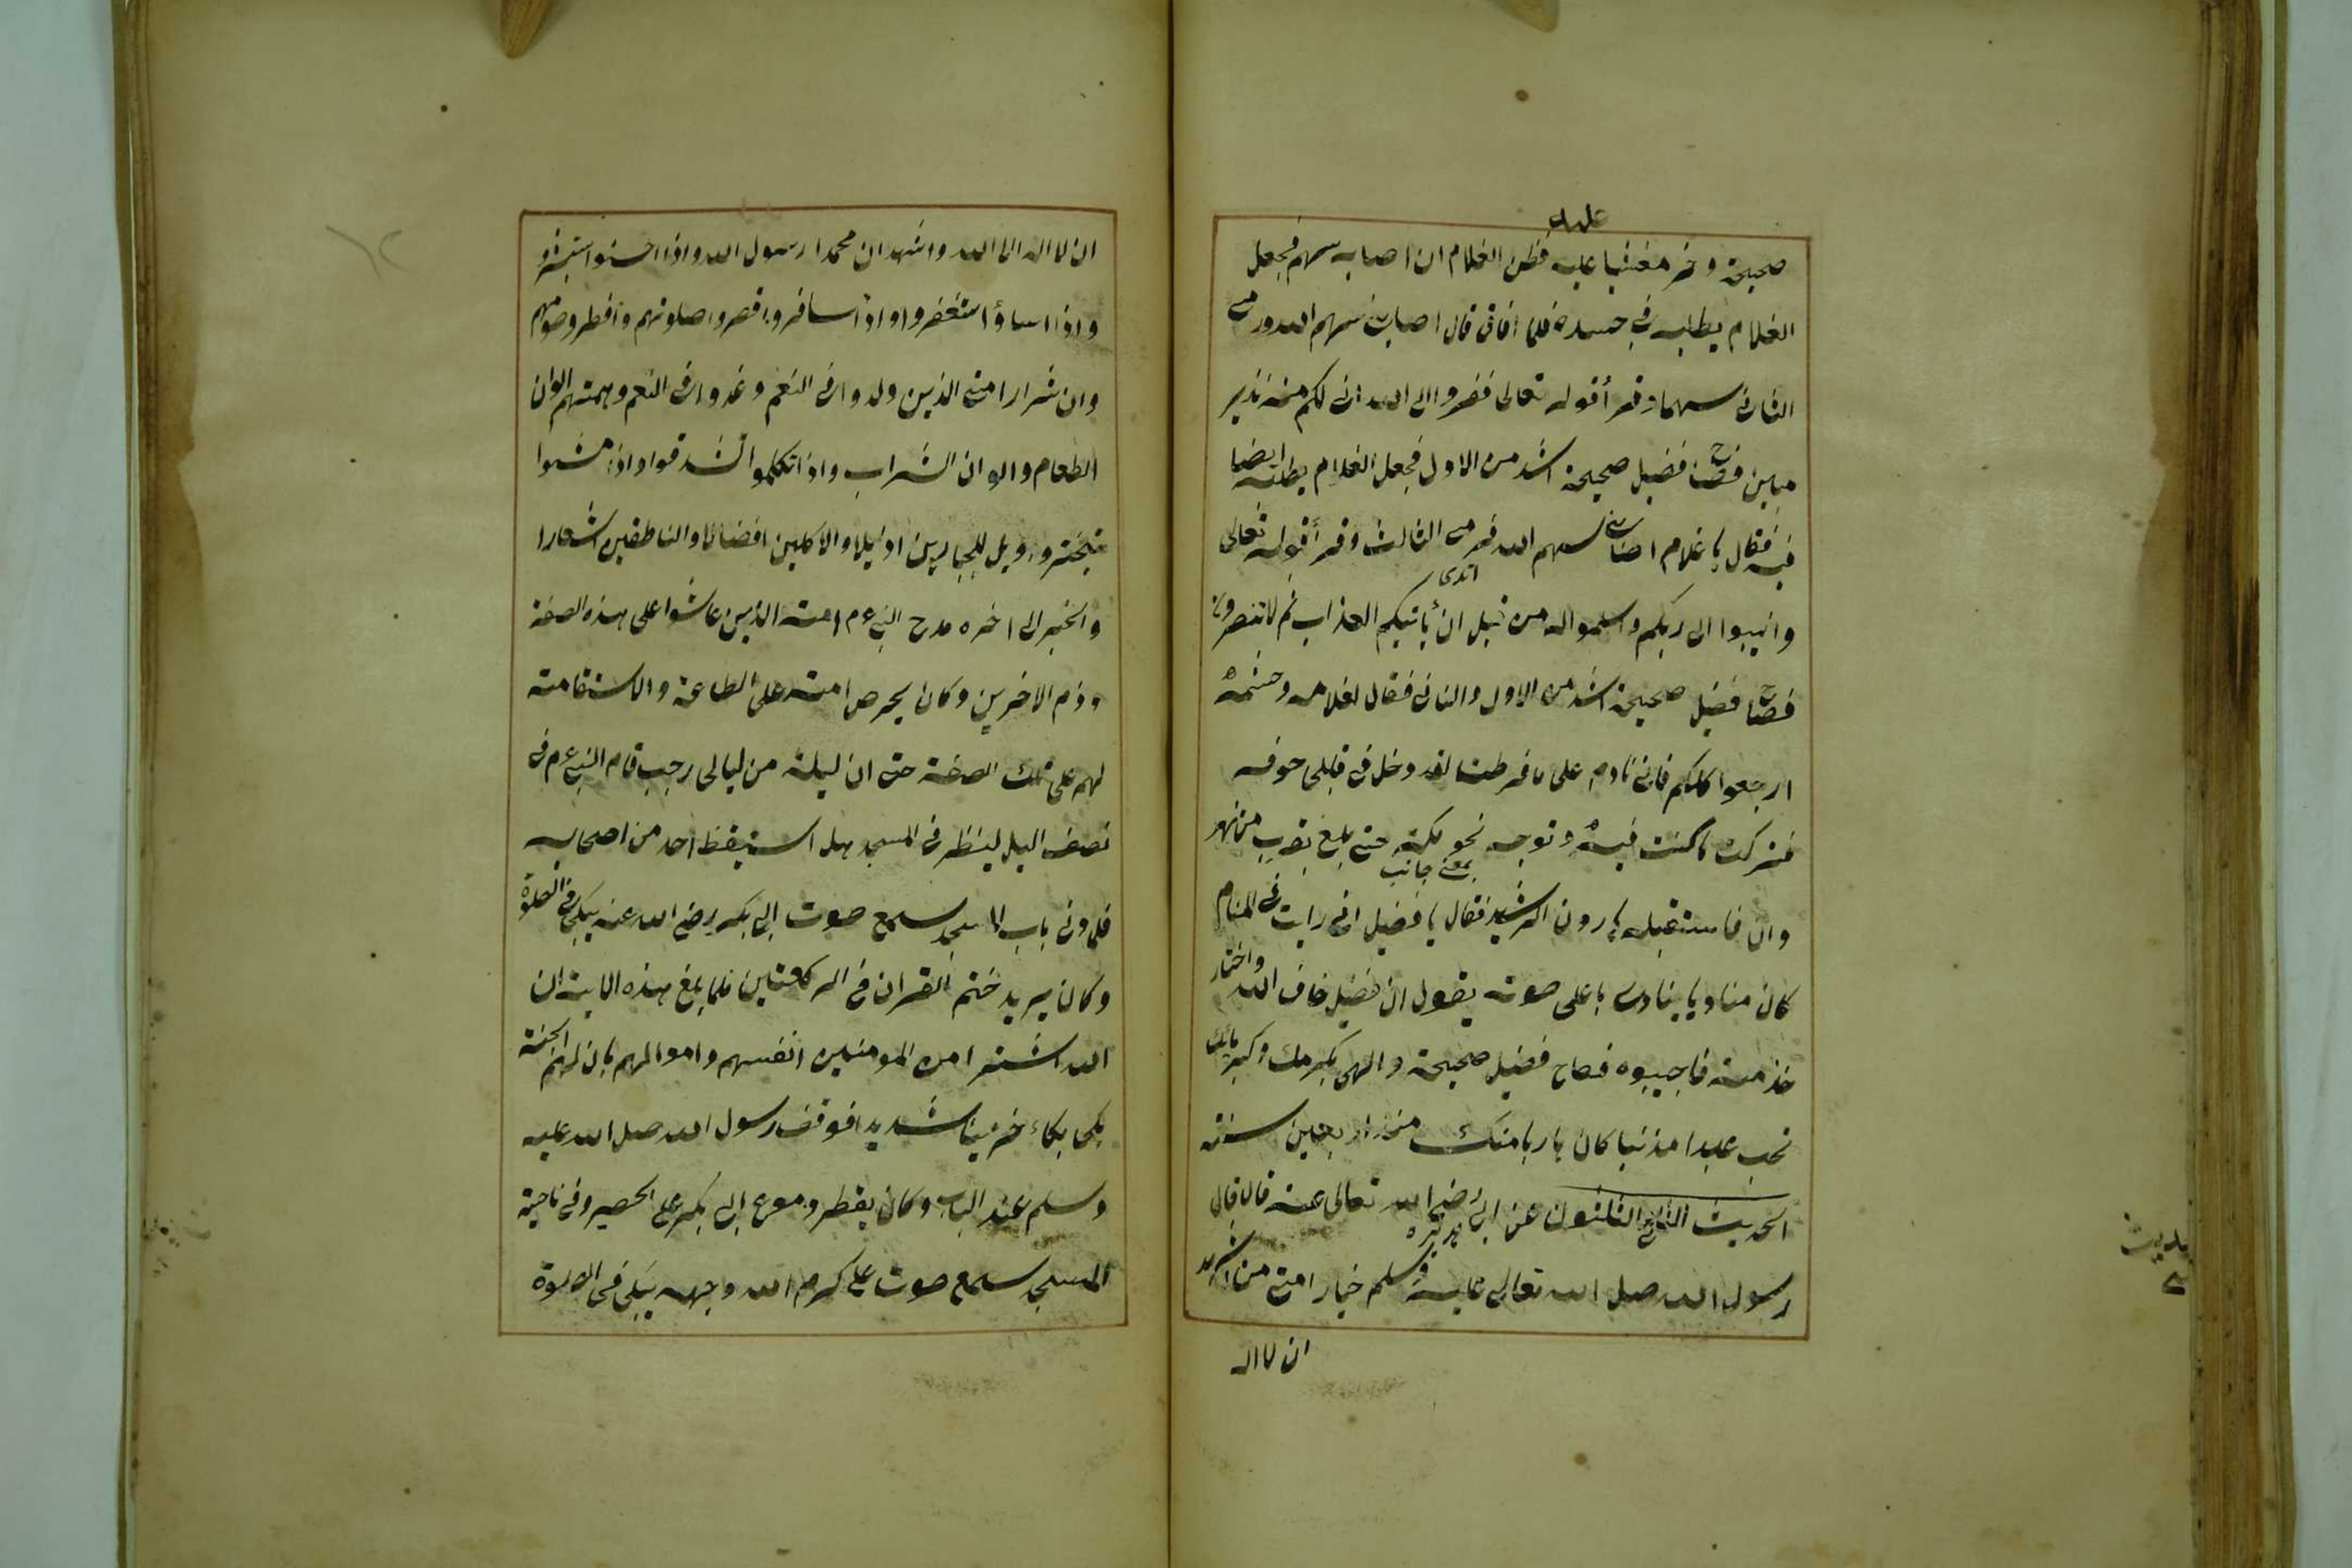 عليه
صيحة وخر مغشيا عليه فظن الغلام ان اصابه سهم فجعل
الغلام يطلبه في جسده فلما افاق قال اصابني سهم الله ورمى
الثاني سهما وقرأ قوله تعالى ففروا الى الله انى لكم منه نذير
مبين فصاح فضيل صيحة اشد من الاول فجعل الغلام يطلبه ايضا
فيه فقال يا غلام اصابني سهم الله فرمى الثالث وقرأ قوله تعالى
وانيبوا الى ربكم واسلموا له من قبل ان يأتيكم العذاب ثم لا تنصرون
فصاح فضيل صيحة اشد من الاول والثاني فقال لغلامه وحشمه
ارجعوا كلكم فاني نادم على ما فرطت لقد دخل في قلبي خوفه
فتركت ما كنت فيه وتوجه نحو مكة حتى بلغ بقرب من نهر
بمعنى جانب
وان فاستقبله هارون الرشيد فقال يا فضيل انى رايت في المنام
كان مناديا ينادى باعلى صوته يقول ان فضيل خاف الله واختار
خدمته فاجيبوه فصاح فضيل صيحة و الهى بكرمك وكبريائك
تحب عبدا مذنبا كان هاربا منك منذ اربعين سنة
الحديث الثلثون عن ابى هريرة رضى الله تعالى عنه قال قال
رسول الله صلى الله تعالى عليه وسلم خيار امتى من اشهد
ان لا اله
ان لا اله الا الله واشهد ان محمدا رسول الله واذا احسنوا استبشروا
واذا اساؤا استغفروا واذا سافروا قصروا صلوتهم وافطروا صومهم
وان شرار امتى الذين ولدوا فى النعم وغدوا فى النعم وهمتهم الوان
الطعام والوان الشراب واذا تكلموا تشدقوا واذا مشوا
تبختروا ويل للجبارين اذيلا والاكلين افضالا والناطقين اشعارا
والخبر الى اخره مدح النبي ءم امته الذين عاشوا على هذه الصفة
وذم الاخرين وكان يحرص امته على الطاعة والاستقامة
لهم على تلك الصفة حتى ان ليلة من ليالى رجب قام النبي ءم في
نصف اليل لينظر فى المسجد هل استيقظ احد من اصحابه
فلما دنى باب المسجد سمع صوت ابى بكر رضى الله عنه يبكى في الصلوة
وكان يريد ختم القران فى الركعتين فلما بلغ هذه الاية ان
الله اشترا من المومنين انفسهم واموالهم بان لهم الجنة
بكى بكاء حزينا شديدا فوقف رسول الله صلى الله عليه
وسلم عند الباب وكان يقطر دموع ابى بكر على الحصير وفى ناحية
المسجد سمع صوت على كرم الله وجهه يبكى فى الصلوة